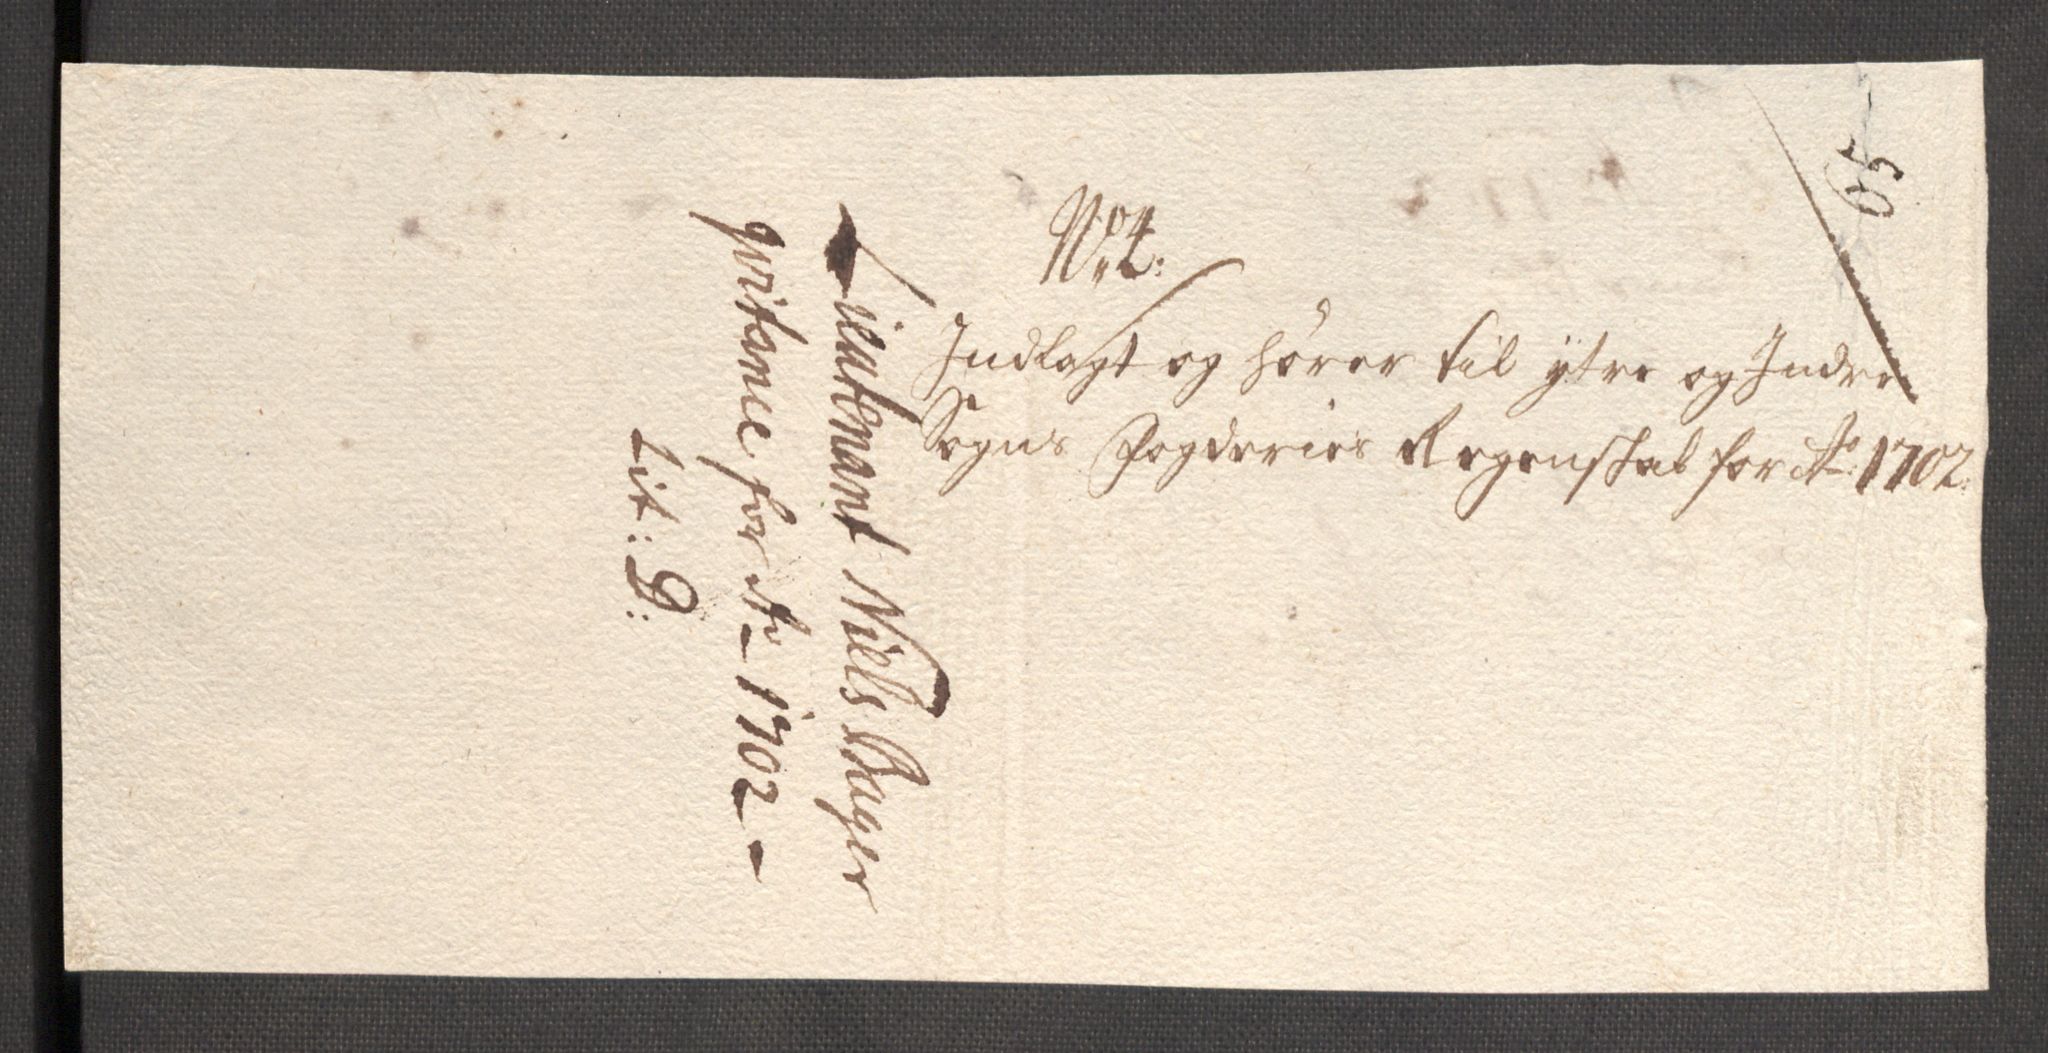 No 4:
Indlagt og hörer til ytre og Indre
Sogns fogderies Regenskab for Ao: 1702.
Lieutenant Niels
qvitance for Ao 1702
Lit: G: